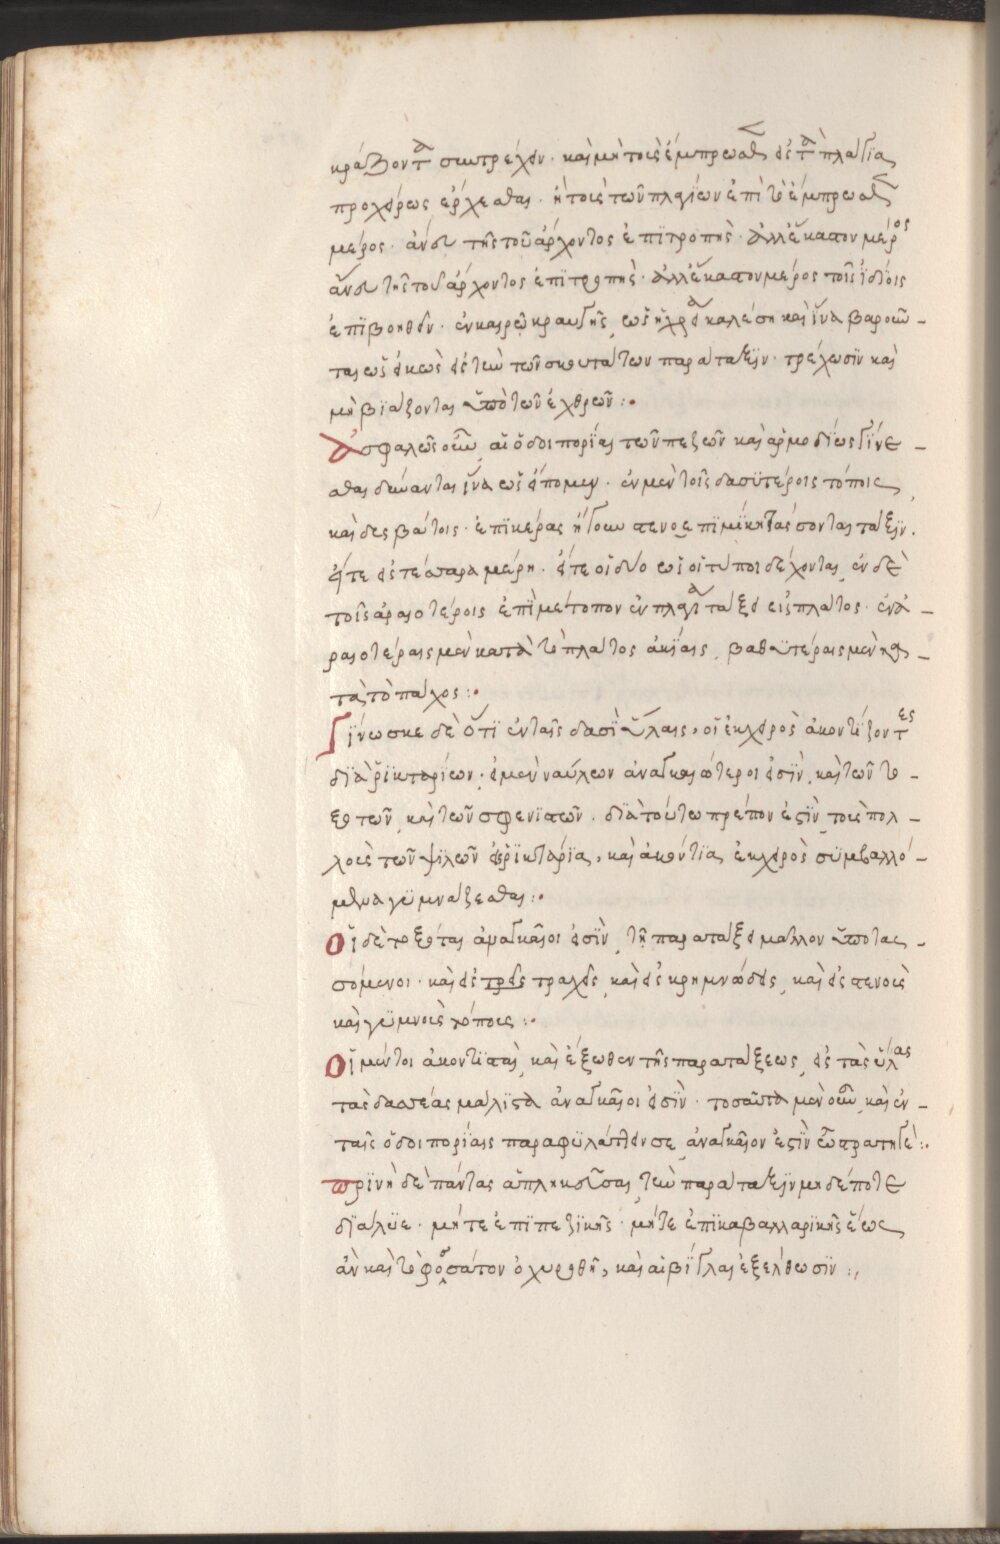 κράζοντα συντρέχειν · καὶ μὴ τοὺς ἔμπροσθεν εἰς τὰ πλάγια
προχείρως ἔρχεσθαι · ἢ τοὺς τῶν πλαγίων ἐπὶ τὸ ἔμπροσθεν
μέρος · ἄνευ τῆς τοῦ ἄρχοντος ἐπιτροπῆς · ἀλλ' ἕκαστον μέρος
ἄνευ τῆς τοῦ ἄρχοντος ἐπιτροπῆς · ἀλλ' ἕκαστον μέρος τοῖς ἰδίοις
ἐπιβοηθεῖν · ἐν καιρῷ κραυγῆς, ὡς ἡ χρεία καλέσῃ καὶ ἵνα βαροῦν -
ται ὡς εἰκὼς εἰς τὴν τῶν σκουτάτων παράταξιν · τρέχωσιν καὶ
μὴ βιάζονται ὑπὸ τῶν ἐχθρῶν :·
Ἀσφαλῶς οὖν αἱ ὁδοιπορίαι τῶν πεζῶν καὶ ἁρμοδίως γίνε -
σθαι δύνανται ἵνα ὡς εἴπομεν · ἐν μὲν τοῖς δασυτέροις τόποις
καὶ δυσβάτοις · ἐπὶ κέρας ἤγουν στενοεπιμήκη τάσσονται τάξιν ·
εἴτε εἰς τέσσαρα μέρη · εἴτε οἱ δύο ὡς οἱ τόποι δέχονται, ἐν δὲ
τοῖς ἀραιοτέροις ἐπὶ μέτοπον ἐν πλαγία τάξει εἰς πλάτος · ἐν ἀ -
ραιοτέραις μὲν κατὰ τὸ πλάτος ἀκίαις, βαθυτέραις μὲν κα -
τὰ τὸ πάχος :·
Γίνωσκε δὲ ὅτι ἐν ταῖς δασὶ ὕλαις, οἱ ἐκ χειρὸς ἀκοντίζοντες
διὰ ῥικταρίων · εἰ μὲν ναύλεων ἀναγκαιότεροι εἰσὶν, καὶ τῶν το -
ξοτῶν, καὶ τῶν σφενιστῶν · διὰ τούτω πρέπον ἐστὶν, τοὺς πολ -
λοὺς τῶν ψιλῶν εἰς ῥικτάρια, καὶ ἀκόντια, ἐκ χειρὸς συμβαλλό -
μενα γυμνάζεσθαι :·
Οἱ δὲ τοξόται ἀναγκαῖοι εἰσὶν, τῇ παρατάξει μᾶλλον ὑποτασ -
σόμενοι · καὶ εἰς τρεῖς τραχεῖς, καὶ εἰς κρημνώδεις, καὶ εἰς στενοὺς
καὶ γυμνοὺς τόπους :·
Οἱ μέντοι ἀκοντισταὶ, καὶ ἔξωθεν τῆς παρατάξεως, εἰς τὰς ὕλας
τὰς δασέας μάλιστα ἀναγκαῖοι εἰσὶν · τοσαῦτα μὲν οὖν, καὶ ἐν
ταῖς ὁδοιπορίαις παραφυλάττειν σε, ἀναγκαῖον ἐστὶν ὦ στρατηγέ :·
πρινὴ δὲ πάντας ἀπληκεῦσαι, τὴν παράταξιν μηδέποτε
διάλυε · μήτε ἐπὶ πεζικῆς · μήτε ἐπὶ καβαλλαρικῆς ἕως
ἂν καὶ τὸ φοσσάτον ὀχυρωθῇ, καὶ αἱ βίγλαι ἐξελθωσιν :,